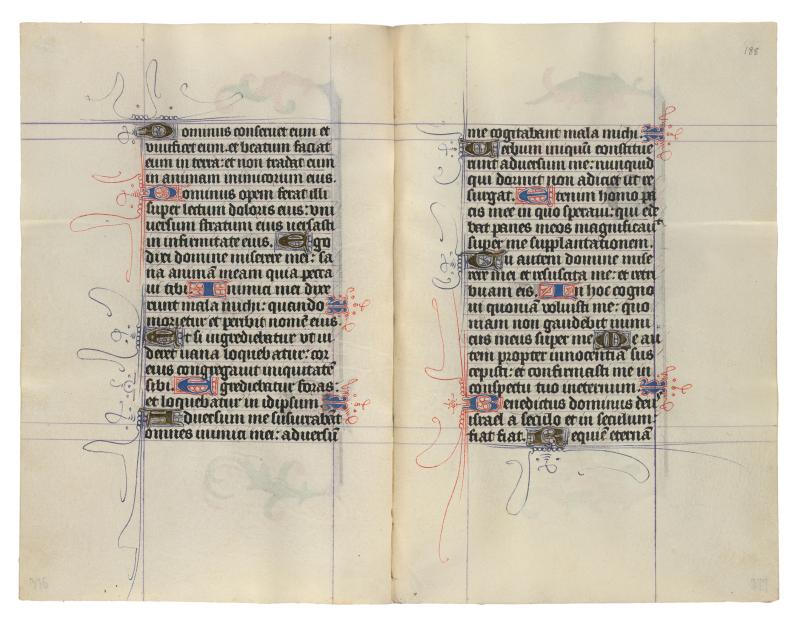 Dominus conseruet eum et
viuificet eum. et beatum faciat
eum in terra: et non tradat eum
in animam inimicorum eius.
Dominus opem ferat illi
super lectum doloris eius: vni
uersum stratum eius uersasti
in infirmitate eius. Ego
dixi domine miserere mei: sa
na animā meam quia pecca
ui tibi. Inimici mei dixe
runt mala michi: quando
morietur et peribit nomē eius.
Et si ingrediebatur vt ui
deret uana loquebatur: cor
eius congregauit iniquitatē
sibi. Egrediebatur foras:
et loquebatur in idipsum.
Aduersum me susurrabāt
omnes inimici mei: aduersū
188
me cogitabant mala michi.
Verbum iniquū constitue
runt aduersum me: nunquid
qui dormit non adiciet ut re
surgat. Etenim homo pa
cis mee in quo speraui: qui ede
bat panes meos magnificauit
super me supplantationem.
Tu autem domine mise
rere mei et resuscita me: et retri
buam eis. In hoc cogno
ui quoniā voluisti me: quo
niam non gaudebit inimi
cus meus super me. Me au
tem propter innocentiā sus
cepisti: et confirmasti me in
conspectu tuo ineternum.
Benedictus dominus deus
israel a seculo et in seculum
fiat fiat. Requiē eternā